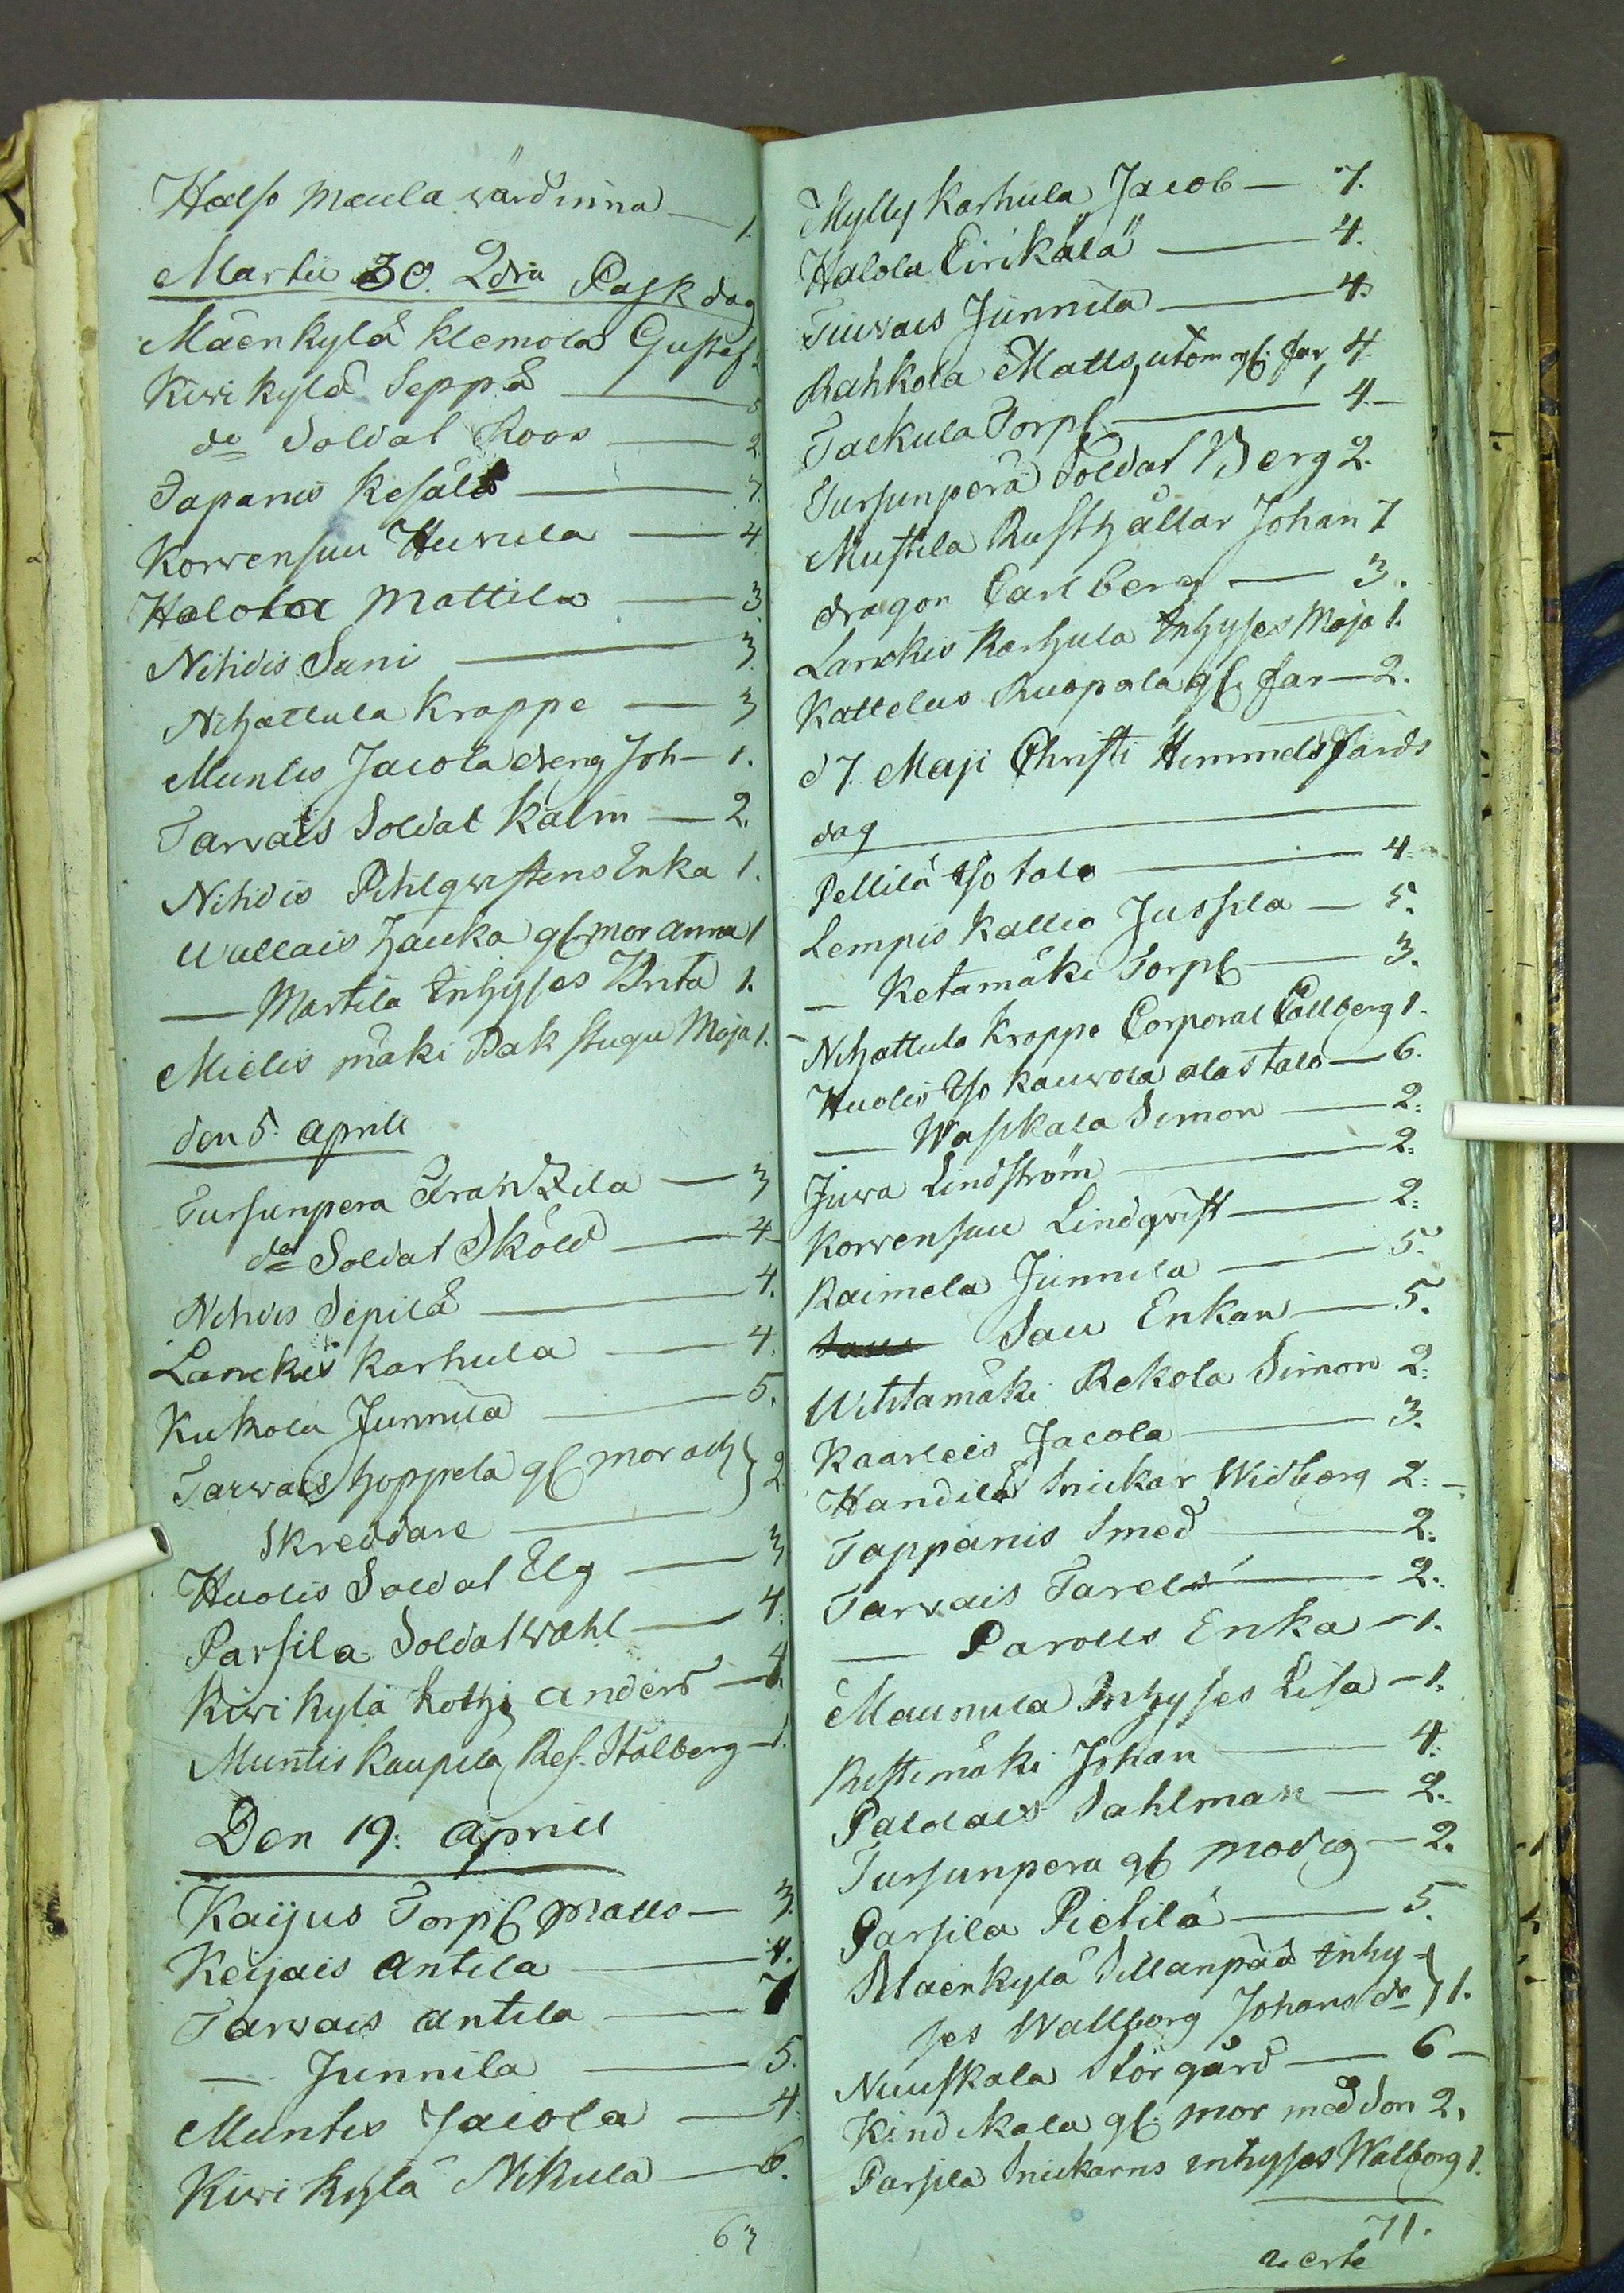 Halso Maula wärdinna — 1.
Martii 30. 2dra Påsk dag
Mäenkylä Klemola Gustaf 2
Kiwikylä Seppä — 5
do Soldat Roos — 2
Tapanis Kesälä — 7.
Korvensuu Huvila — 4.
Halola Mattila — 3.
Nihidis Suni — 3.
Nihattula Krappe — 3
Muntis Jacola dreng Joh — 1.
Tarvais Soldat Kalm — 2.
Nihidis Pihlqvistens Enka 1.
Wallais Hauka gl. mor Anna 1
— Martila Inhyses Brita 1.
Mielis mäki Bakstugu Maja 1.
den 5. Aprill
Tursunpera Frantzila — 3
do Soldat Sköld — 4
Nihidis Sepilä — 4.
Lanckis Karhula — 4.
Kukola Junnila — 5.
Tarvais Hoppela gl. mor och } 2
Skreddare —
Huolis Soldat Elg — 3
Parsila Soldat Wahl — 4.
Kiwikylä Kothi Anders — 1.
Muntis Kaupila Ref. Stålberg — 1.
Den 19: Aprill
Kaijus Torpf. Matts — 3.
Keijais Antila — 4.
Tarvais Antila — 7
— Junnila — 5.
Muntis Jacola — 4.
Kiwikylä Nikula — 6.
63
Mylly Karhula Jacob — 7.
Halola Eirikälä — 4.
Tiuvais Junnila — 4.
Rahkola Matts, utom gl. far, 4.
Taekula Torpf. — 4.—
Tursunperä Soldat Berg 2.
Mustila Rusthållar Johan 7
dragon Carlberg — 3.
Lanckis Karhula Inhyses Maja 1.
Kattelus Ruopala gl. far — 2.
d 7. Maji Christi Himmelsfärds
dag
Pellilä Iso talo — 4.
Lempis Kallio Jussila — 5.
— Ketamäki Torpf. — 3.
Nihattula Krappe Corporal Callberg 1.
Huolis Iso Kauvola alastalo — 6.
— Waskala Simon — 2.
Juva Lindström — 2.
Korvensuu Lindqvist — 2.
Raimela Junnila — 5.
Sau Enkan — 5.
Wihtamäki Rekola Simon 2.
Kaarleis Jacola — 3.
Handila Snickar Widberg 2. —
Tappanis Smed — 2.
Tarvais Tarels — 2.
— Parolls Enka — 1.
Maunula Inhyses Lisa — 1.
Ristimäki Johan — 4.
Paldais Sahlman — 2.
Tursunpera gl. Modig — 2.
Parsila Pietilä — 5.
Mäenkylä Sillanpää Inhy-
ses Wallborg Johansdr } 1.
Nuuskala Storgård — 6 —
Kindikala gl. mor med son 2.
Parsila Snickarns inhyses Walborg 1.
71.